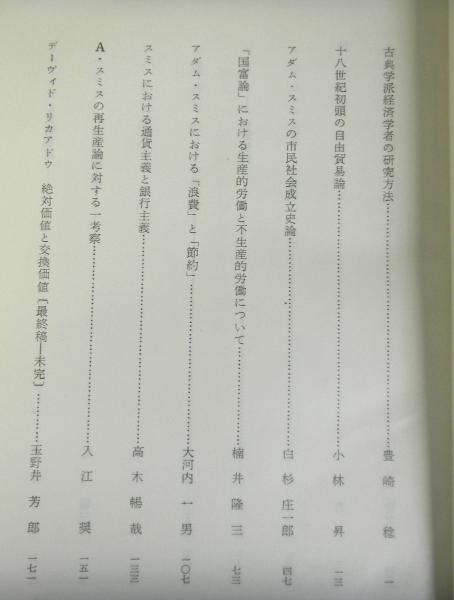 古典学派経済学者の研究方法…………豊崎稔 一
十八世紀初頭の自由貿易論…………小林昇 一三
アダム・スミスの市民社会成立史論…………白杉庄一郎 四七
「国富論」における生産的労働と不生産的労働について…………楠井隆三 七三
アダム・スミスにおける「浪費」と「節約」…………大河内一男 一〇七
スミスにおける通貨主義と銀行主義…………高木暢哉 一三三
A・スミスの再生産論に対する一考察…………入江奨 一五一
デーヴィド・リカアドウ 絶対価値と交換価値〔最終稿―未完〕…………玉野井芳郎 一七一